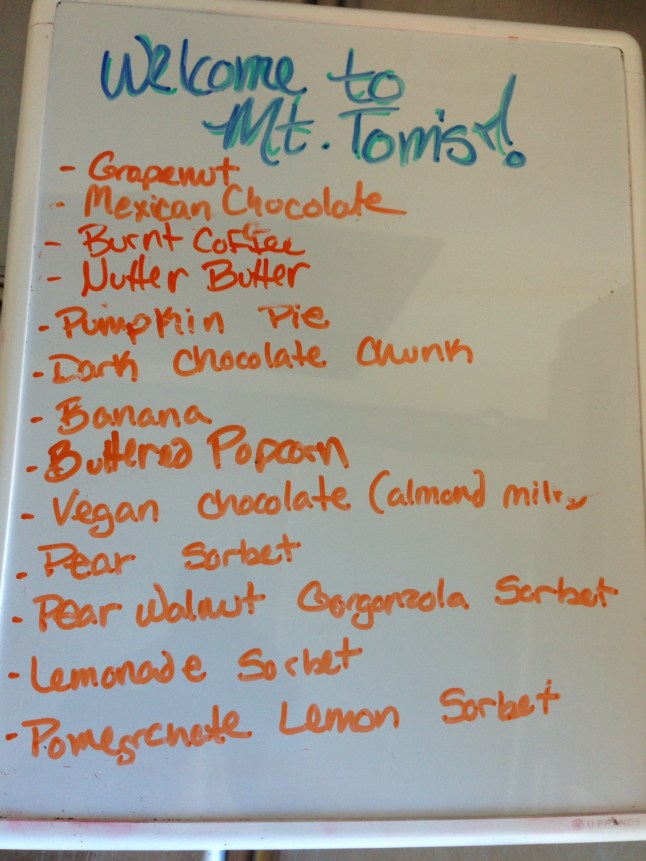 Welcome to
Mt. Tom's!
- Grapenut
- Mexican Chocolate
- Burnt Coffee
- Nutter Butter
- Pumpkin Pie
- Dark Chocolate Chunk
- Banana
- Buttered Popcorn
- Vegan chocolate (almond milk)
- Pear Sorbet
- Pear Walnut Gorgonzola Sorbet
- Lemonade Sorbet
- Pomegranate Lemon Sorbet
U BRANDS